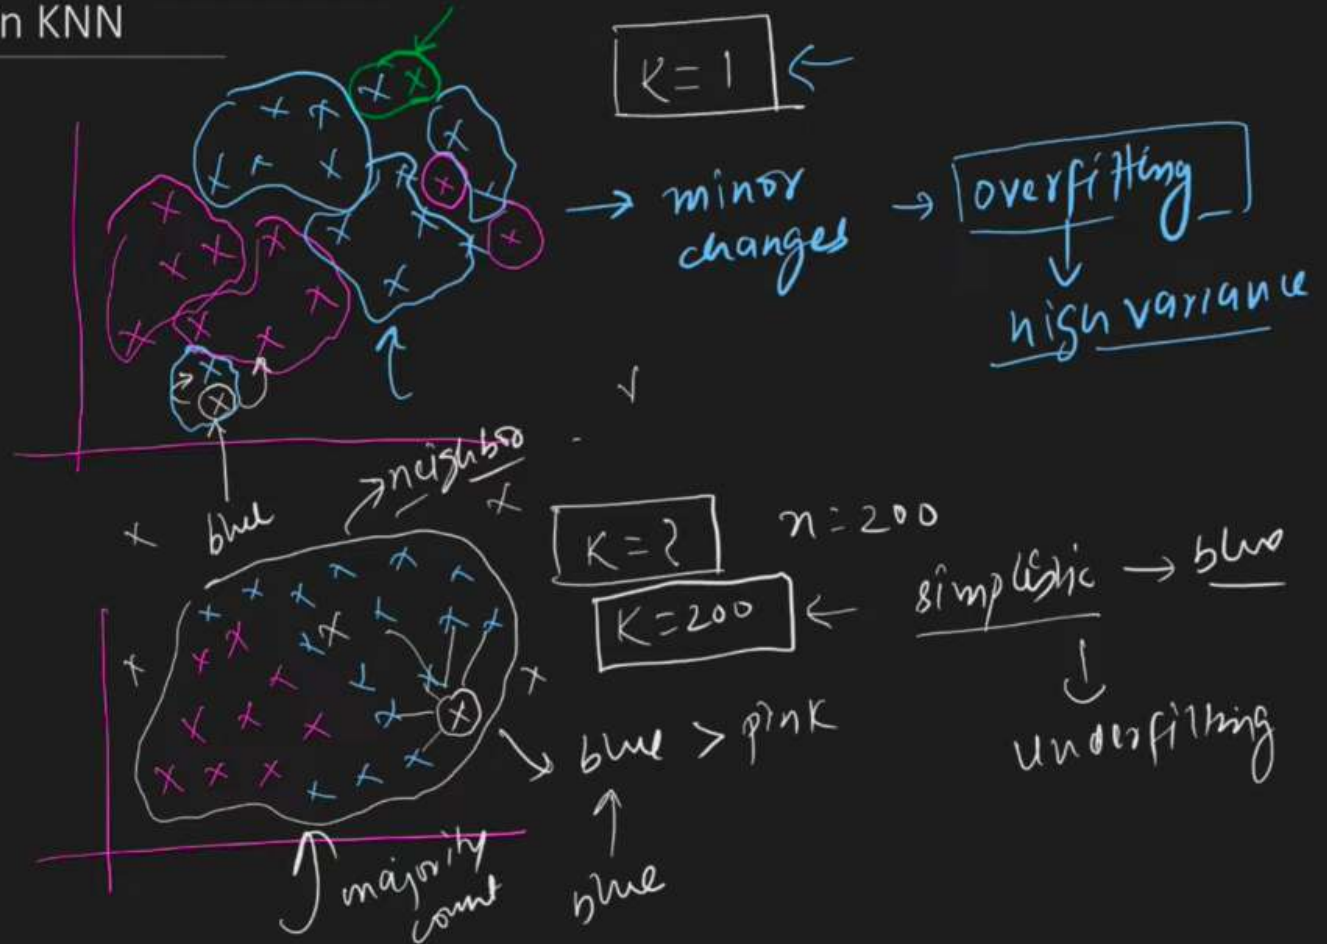 n KNN
K = 1
minor
changes
overfitting
high variance
blue
neighbo
K = ?
n = 200
K = 200
simplistic → blue
underfitting
blue > pink
blue
majority
count